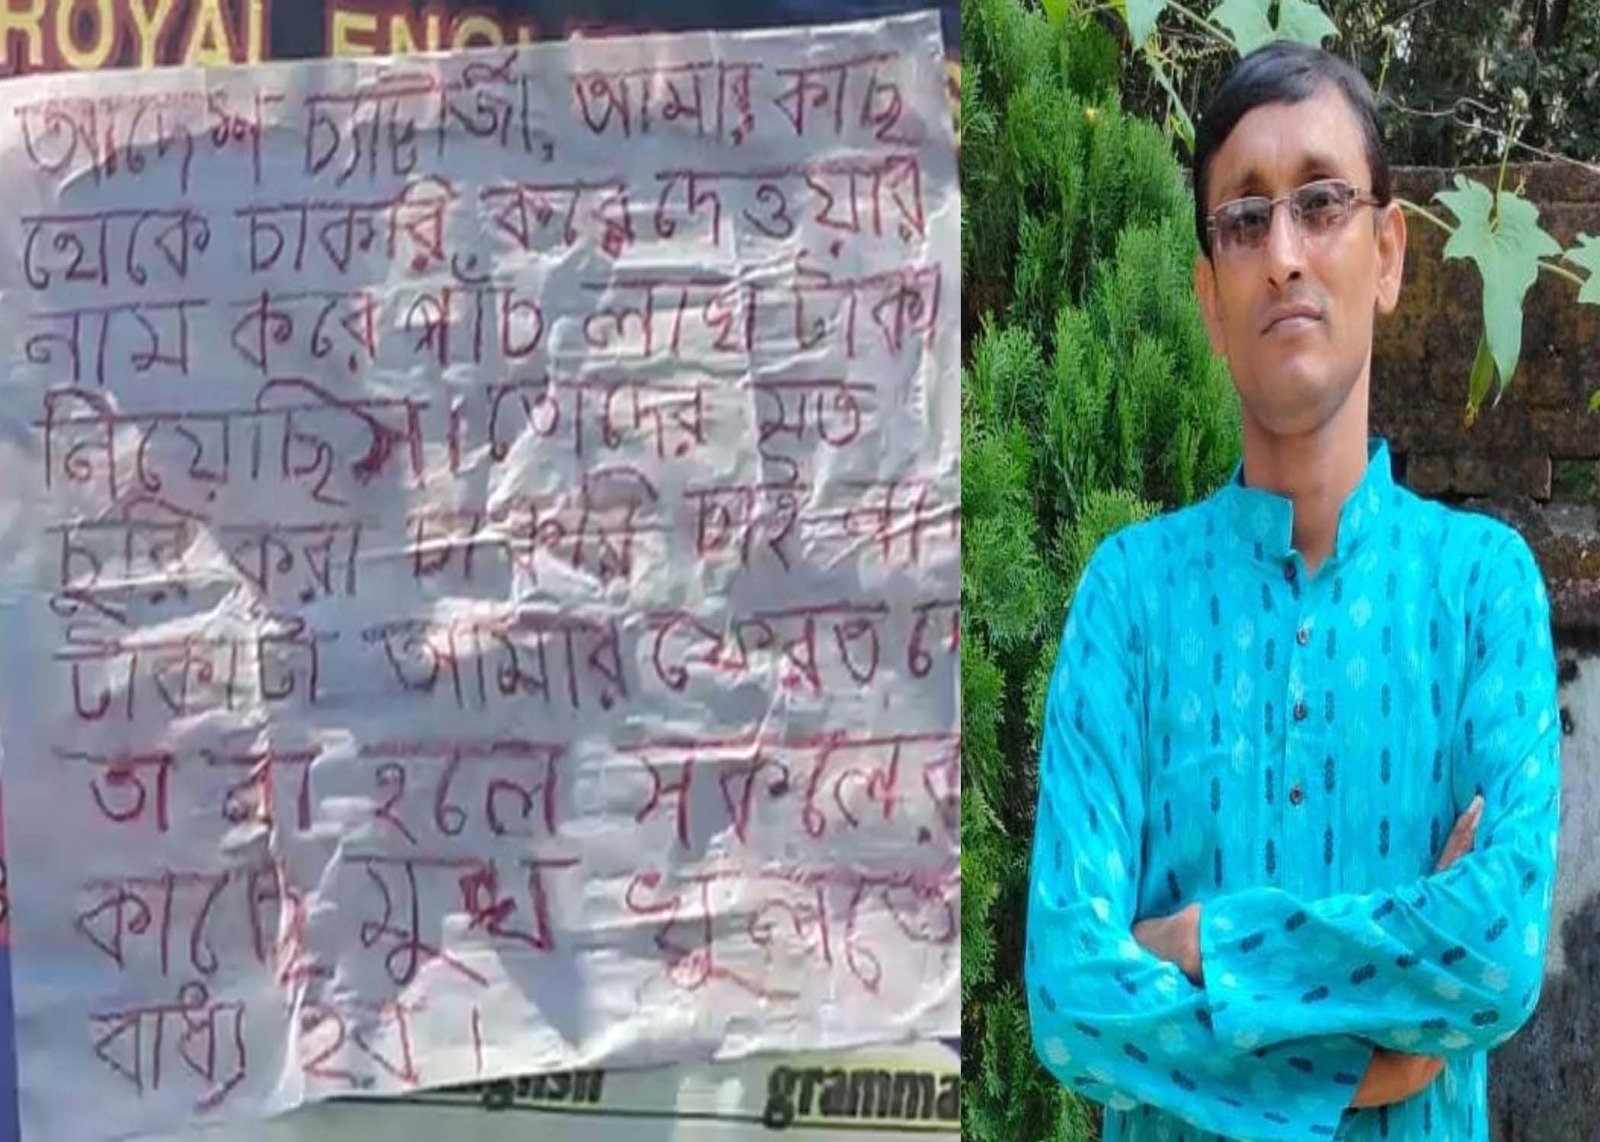 ROYAL ENGL
আদেশ চ্যাটার্জী, আমার কাছ
থেকে চাকরি করে দেওয়ার
নাম করে পাঁচ লাখ টাকা
নিয়েছিস। তোদের মত
চুরি করা চাকরি চাই না
টাকাটা আমার ফেরত দে
তা না হলে সকলের
কাছে মুখ খুলতে
বাধ্য হব।
english grammar